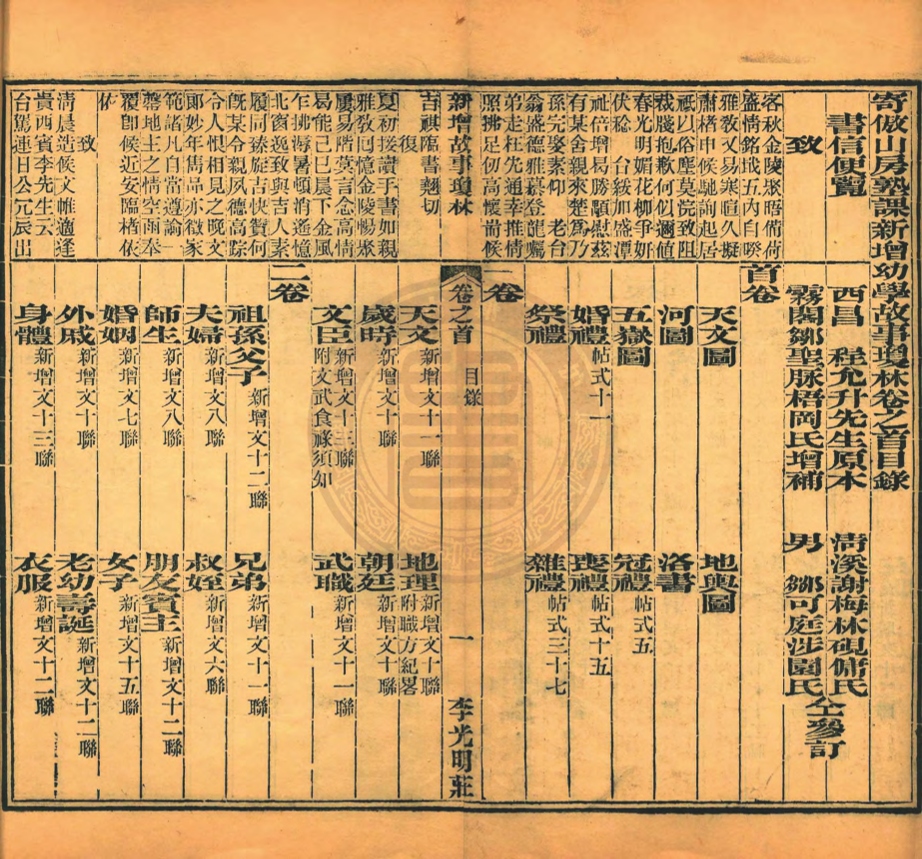 寄傲山房塾課新增幼學故事瓊林卷之首目錄
書信便覽
致
客秋金陵聚晤備荷
盛情銘戢五內自睽
雅敎又易寒暄久擬
肅楮申候馳詢起居
祇以俗塵莫浣致阻
裁牋抱歉何似邇値
春光明媚花柳爭妍
伏稔 台綏加盛潭
祉倍增曷勝顒慰茲
有某舍親來楚爲乃
孫完娶素仰 老台
翁盛德雅慕登龍囑
弟走柱先通幸推情
照拂足仞高懷耑候
西昌 程允升先生原本 淸溪謝梅林硯傭氏
霧閣鄒聖脉梧岡氏增補 男 鄒可庭涉園氏 仝叅訂
首卷
天文圖 地輿圖
河圖 洛書
五嶽圖 冠禮帖式五
婚禮帖式十一 喪禮帖式十五
祭禮 雜禮帖式三十七
一卷
新增故事瓊林 卷之首 目錄 一 李光明莊
吉祺臨書翹切
復
夏初接讀手書如親
雅敎回憶金陵暢聚
屢易階蓂言念高情
曷能已已晨下金風
乍拂溽暑頓消遙憶
北窗逸致與吉人素
履同臻旋吉快贊何
旣某令親夙德高踪
令人恨相見之晚文
郎妙年雋品亦徵家
範詎凡自當遵諭一
罄地主之情空函奉
覆卽候近安臨楮依
依
致
淸晨造候文帷適逢
貴西賓李先生云
台駕連日公冗辰出
天文新增文十一聯 地理新增文十聯附職方紀畧
歲時新增文十聯 朝廷新增文十聯
文臣新增文十三聯附文武食祿須知 武職新增文十二聯
二卷
祖孫父子新增文十二聯 兄弟新增文十一聯
夫婦新增文八聯 叔姪新增文六聯
師生新增文八聯 朋友賓主新增文十二聯
婚姻新增文七聯 女子新增文十五聯
外戚新增文十聯 老幼壽誕新增文十二聯
身體新增文十三聯 衣服新增文十二聯